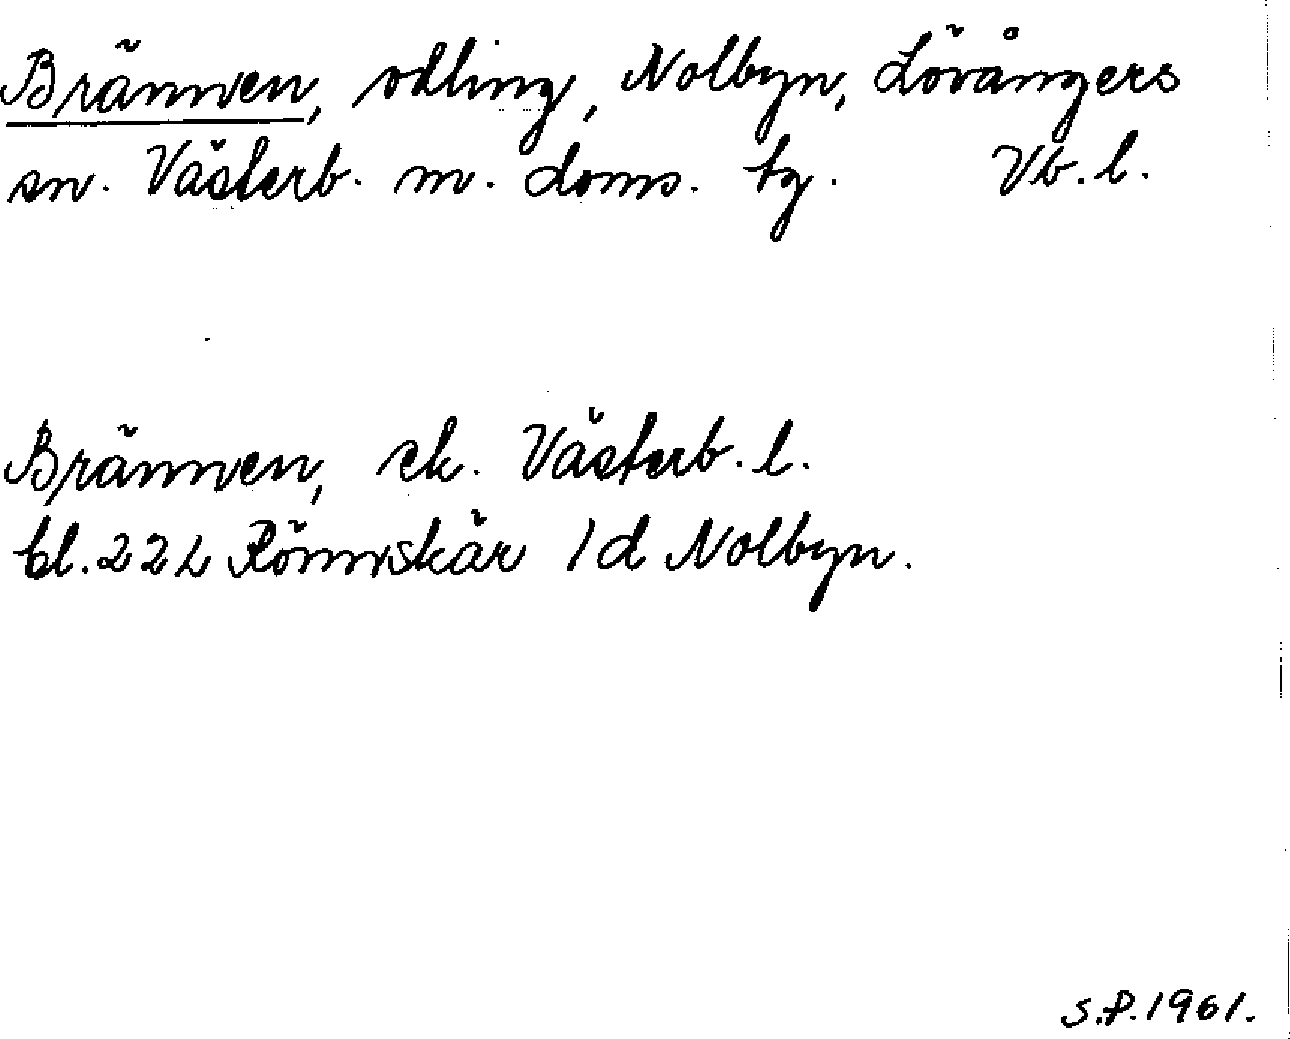 Brännen, odling, Nolbyn, Lövångers
sn. Västerb. m. doms. tg. Vb. l.
Brännen, ek. Västerb. l.
bl. 22 L Rönnskär 1 d Nolbyn.
S.P. 1961.